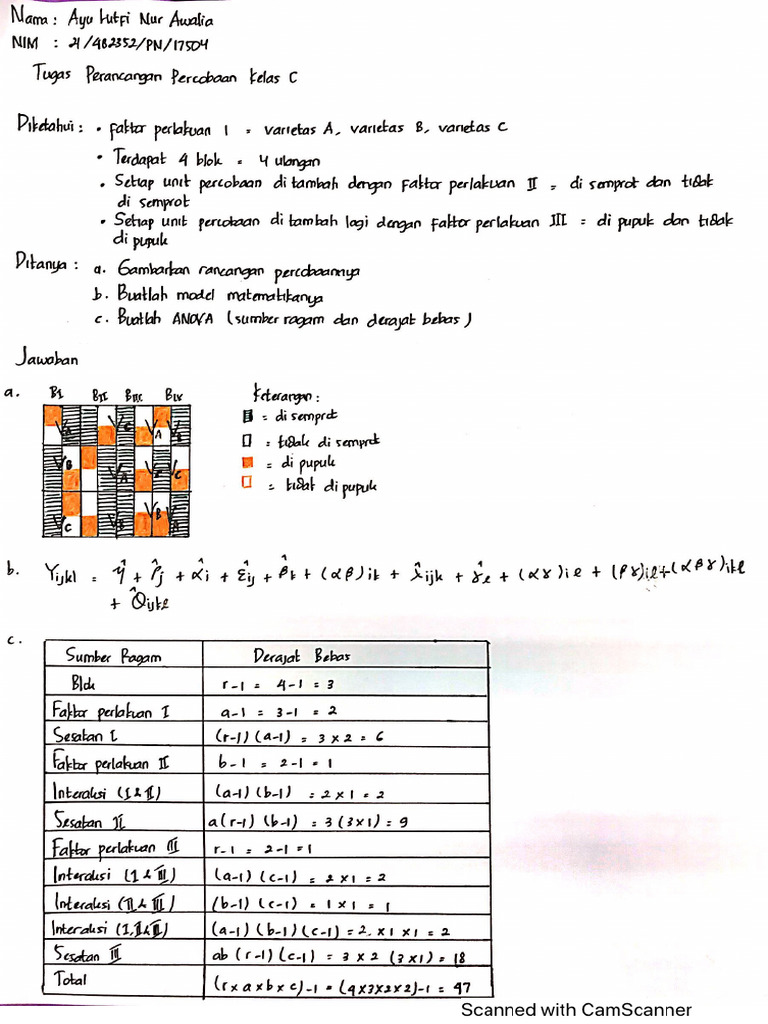 Nama : Ayu Lutfi Nur Awalia
NIM : 21/482352/PN/17504
Tugas Perancangan Percobaan Kelas C
Diketahui : • Faktor perlakuan I = varietas A, varietas B, varietas C
• Terdapat 4 blok = 4 ulangan
• Setiap unit percobaan di tambah dengan Faktor perlakuan II = di semprot dan tidak
di semprot
• Setiap unit percobaan di tambah lagi dengan faktor perlakuan III = di pupuk dan tidak
di pupuk
Ditanya : a. Gambarkan rancangan percobaannya
b. Buatlah model matematikanya
c. Buatlah ANOVA (sumber ragam dan derajat bebas)
Jawaban
a. BI BII BIII BIV
VA VC VA VB
VB VA VC
VC VB VB VA
Keterangan :
= di semprot
= tidak di semprot
= di pupuk
= tidak di pupuk
b. Yijkl = + ρ̂j + α̂i + ε̂ij + β̂k + (αβ)ik + λ̂ijk + γ̂l + (αγ)il + (βγ)il + (αβγ)ikl
+ Θ̂ijkl
c. Sumber Ragam Derajat Bebas
Blok r-1 = 4-1 = 3
Faktor perlakuan I a-1 = 3-1 = 2
Sesatan I (r-1)(a-1) = 3 x 2 = 6
Faktor perlakuan II b-1 = 2-1 = 1
Interaksi (I & II) (a-1)(b-1) = 2 x 1 = 2
Sesatan II a(r-1)(b-1) = 3(3x1) = 9
Faktor perlakuan III r-1 = 2-1 = 1
Interaksi (I & III) (a-1)(c-1) = 2 x 1 = 2
Interaksi (II & III) (b-1)(c-1) = 1 x 1 = 1
Interaksi (I, II & III) (a-1)(b-1)(c-1) = 2 x 1 x 1 = 2
Sesatan III ab(r-1)(c-1) = 3 x 2 (3x1) = 18
Total (r x a x b x c)-1 = (4x3x2x2)-1 = 47
Scanned with CamScanner